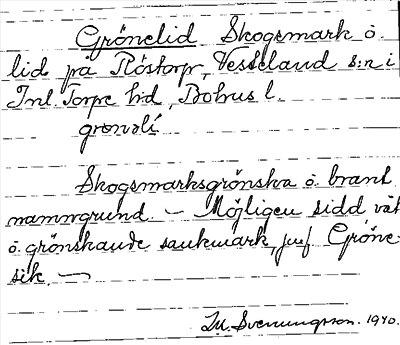 Grönelid Skogsmark o.
lid på Röstorp, Vesseland s:n i
Inl. Torpe hd, Bohus l.
grønəli
Skogsmarksgrönska o. brant
namngrund. — Möjligen sidd våt
o. grönskande sankmark, jmf Gröne-
sik. —
Svenungsson. 1940.